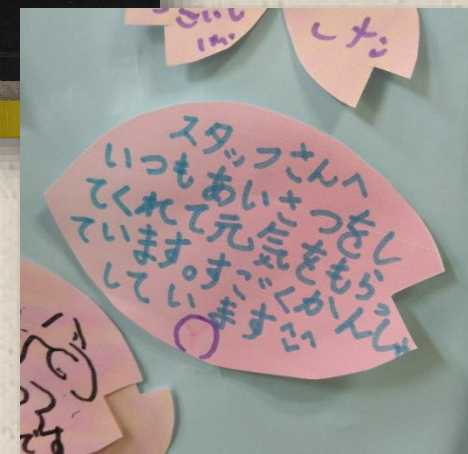 スタッフさんへ
いつもあいさつをし
てくれて元気をもらっ
ています。すごくかんしゃ
しています